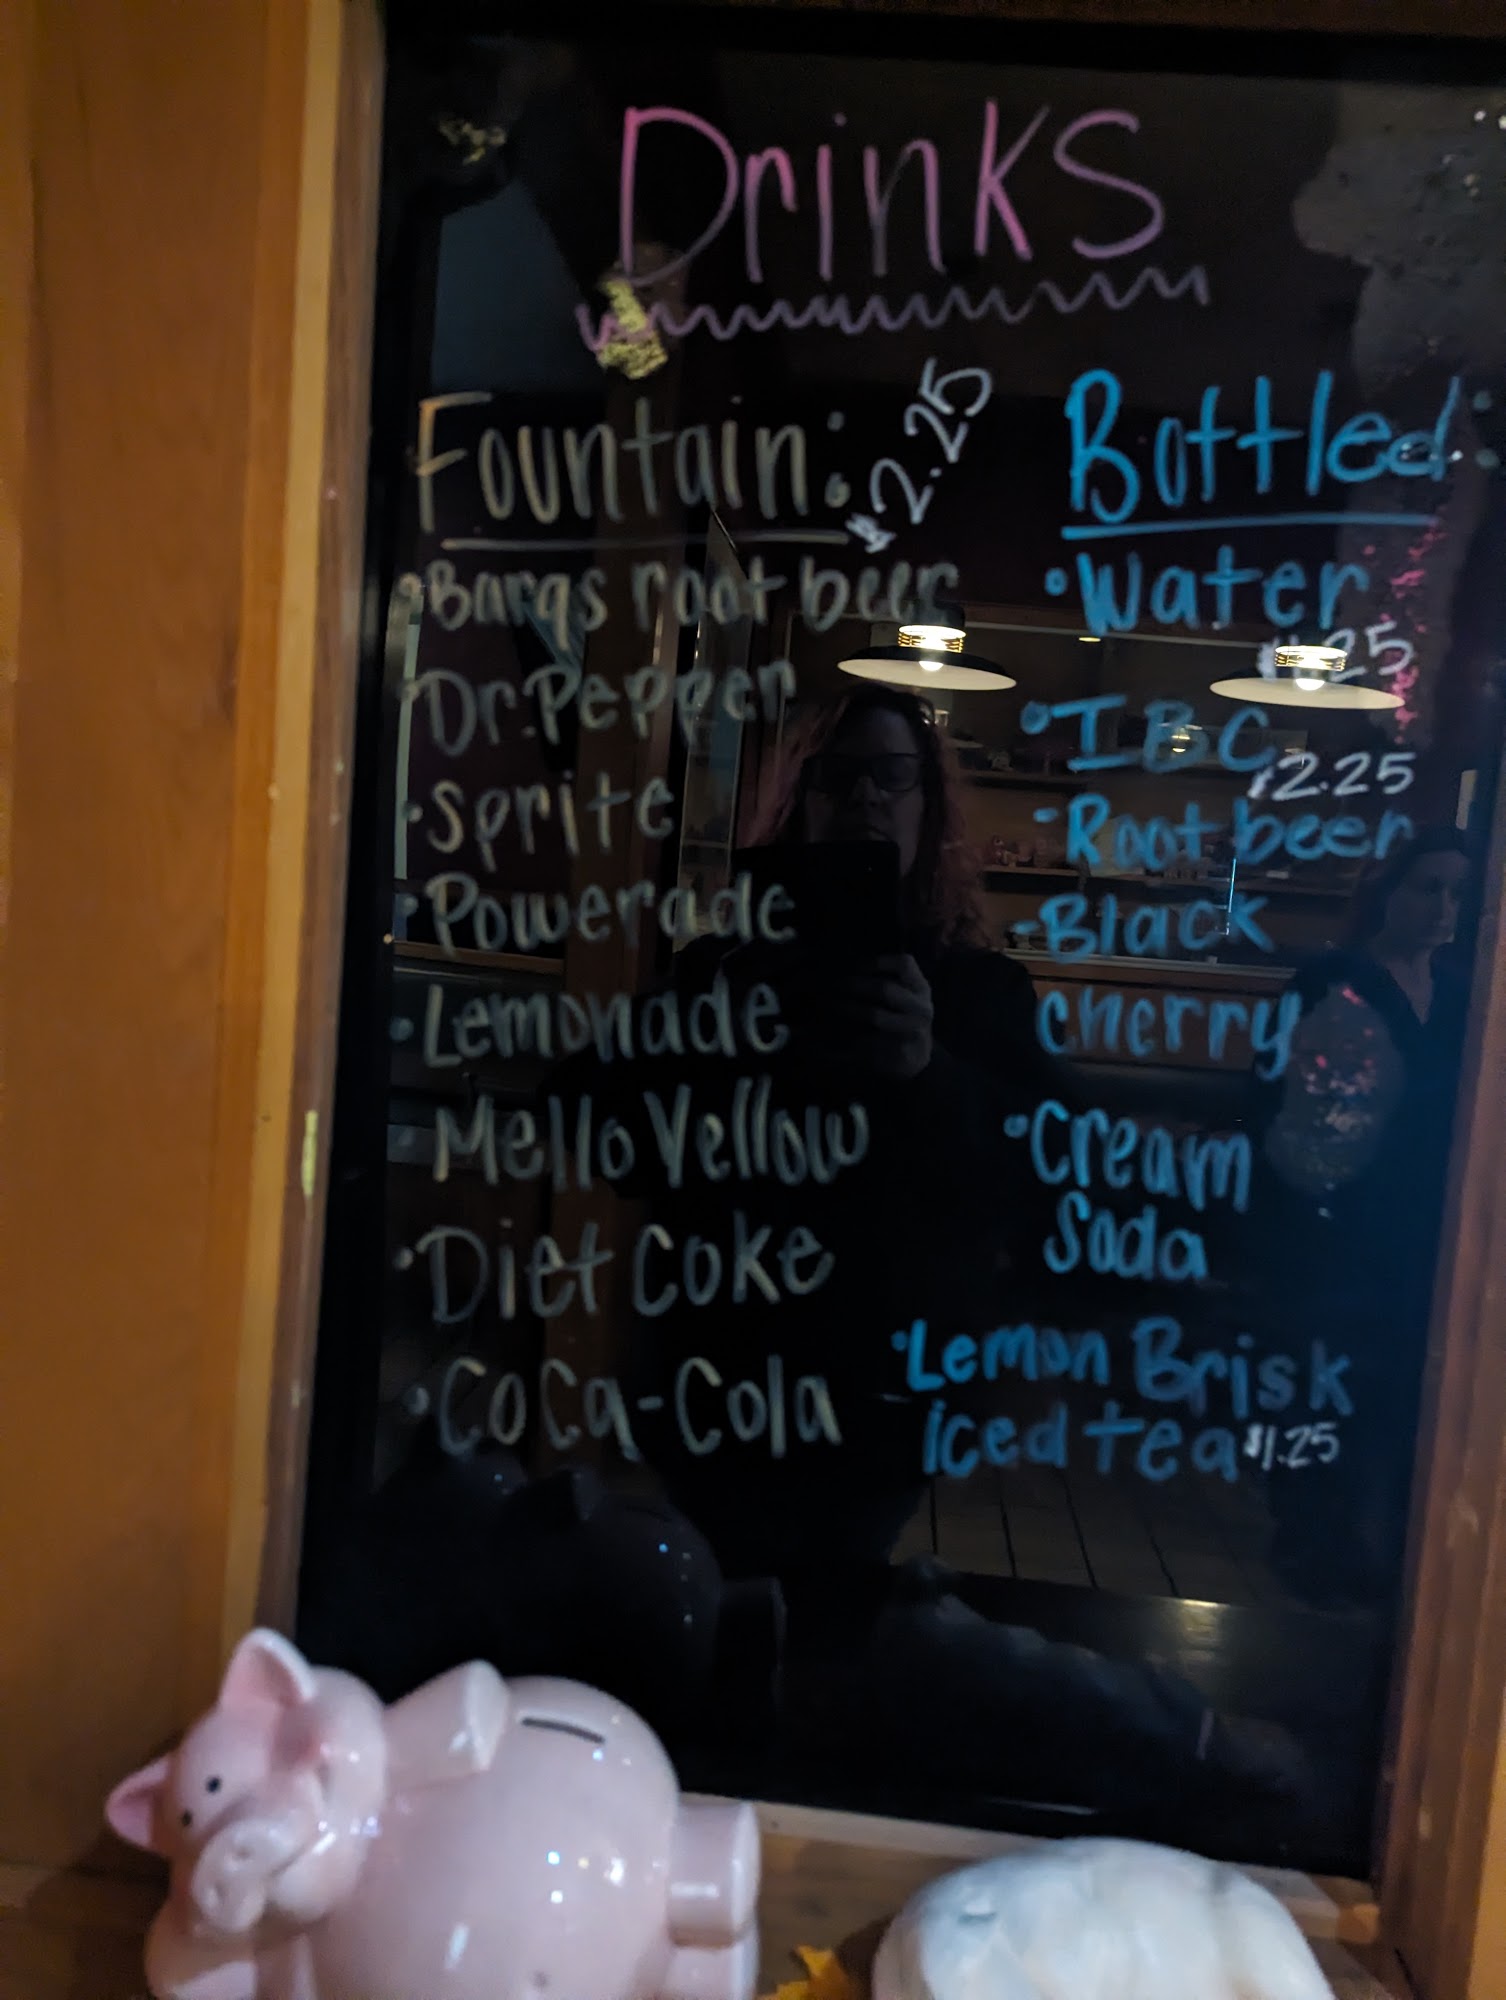 Drinks
Fountain: $2.25
•Barqs root beer
•Dr. Pepper
•Sprite
•Powerade
•Lemonade
•Mello Yellow
•Diet Coke
•Coca-Cola
Bottled:
•Water
•IBC
$2.25
-Root beer
-Black
cherry
•Cream
Soda
•Lemon Brisk
iced tea $1.25